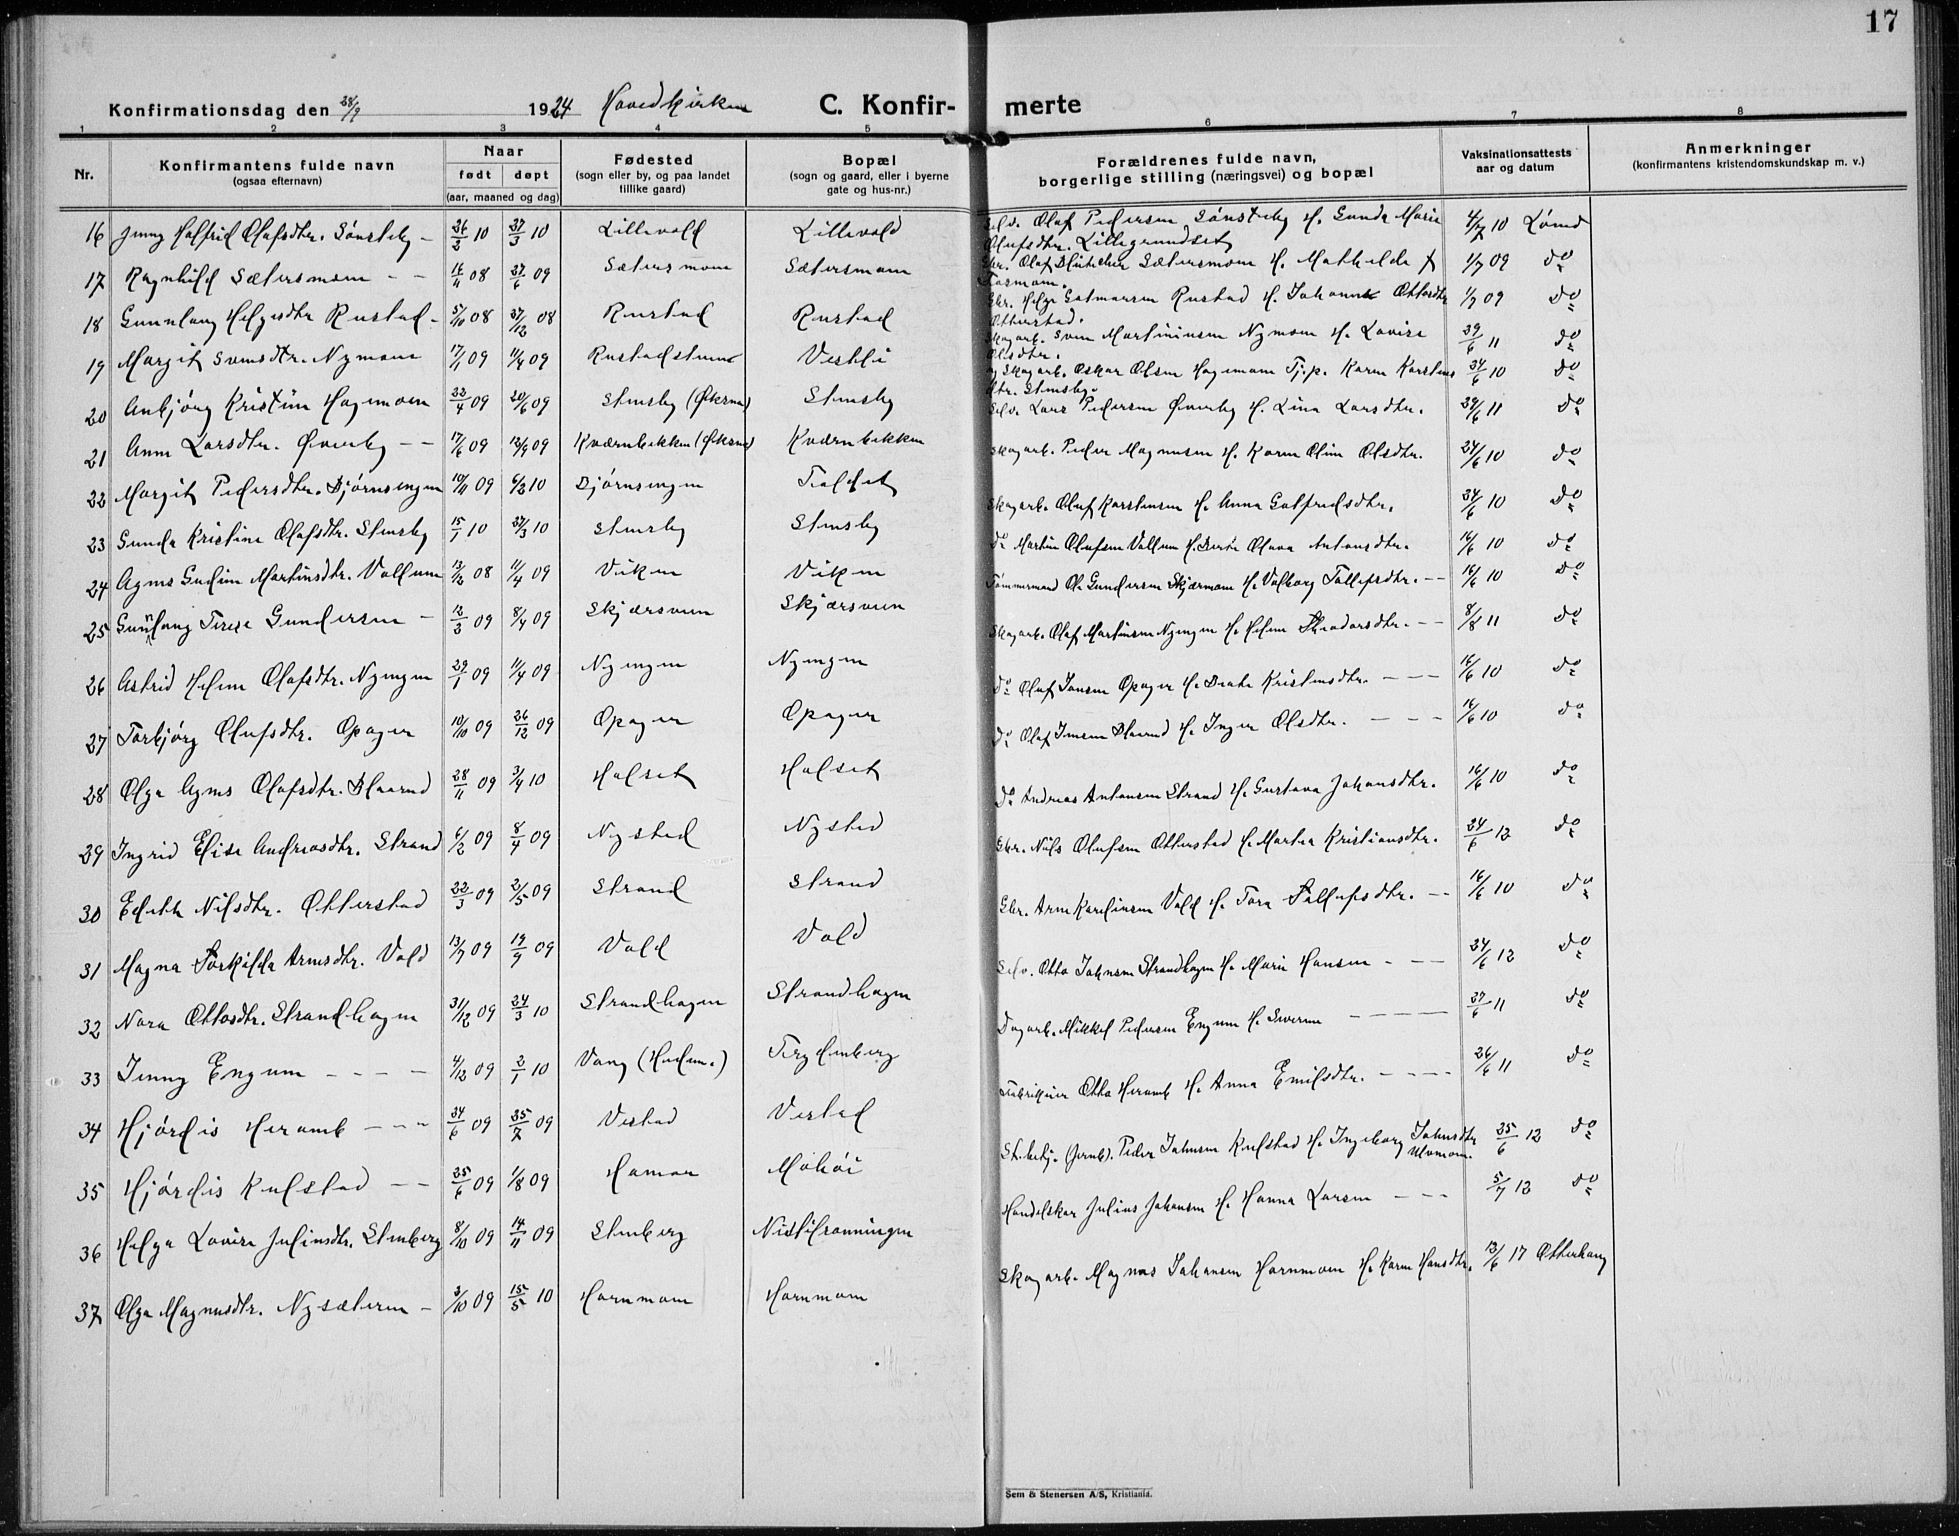 17
Konfirmationsdag den 28/9 1924 Hovedkirken C. Konfir- merte
1 2 3 4 5 6 7 8
Nr. Konfirmantens fulde navn (ogsaa efternavn) Naar født døpt (aar, maaned og dag) Fødested (sogn eller by, og paa landet tillike gaard) Bopæl (sogn og gaard, eller i byerne gate og hus-nr.) Forældrenes fulde navn, borgerlige stilling (næringsvei) og bopæl Vaksinationsattests aar og datum Anmerkninger (konfirmantens kristendomskundskap m. v.)
16 Jenny Halfrid Olafsdtr. Sønsteby - 26/3 10 27/3 10 Lillevold Lillevold Selv. Olaf Pedersen Sønsteby H. Gunda Marie 4/7 10 Løined
Olufsdtr. Lillegrundset
17 Ragnhild Sætersmoen - - 16/4 08 27/6 09 Sætersmoen Sætersmoen Gbr. Olaf Sætersmoen H. Mathilde 1/7 09 do
18 Gunnlaug Helgesdtr Rustad - 5/10 08 27/12 08 Rustad Rustad Gbr. Helge Rustad H. Johanne Ottosdtr 1/7 09 do
Otterstad.
19 Margit Svensdtr. Nymoen 17/1 09 11/4 09 Vestli Skogarb. Sven Martiniusen Nymoen H. Lovise 29/6 11 do
Olsdtr.
20 Anbjørg Kristine Hagemoen 22/4 09 20/6 09 Stensby (Øksna) Stensby Skogarb. Oskar Olsen Hagemoen Tj.p. Karen Karstens 24/6 10 do
dtr. Stensby.
21 Anne Larsdtr. Øverby - - 17/6 09 12/9 09 Kværnbekken (Øksna) Kværnbekken Selv. Lars Pedersen Øverby H. Lina Larsdtr. 29/6 11 do
22 Margit Pedersdtr. Bjørnsengen 10/11 09 6/2 10 Bjørnsengen Skogarb. Peder Magnusen H. Karen Oline Olsdtr. 24/6 10 do
23 Gunda Kristine Olafsdtr. Stensby 15/1 10 27/3 10 Stensby Stensby Skogarb. Oluf Karstensen H. Anna Gotfredsdtr. 24/6 10 do
24 Agnes Gudine Martinsdtr. Vollum 13/12 08 11/4 09 Viken Viken do Martin Olufsen Vollum H. Berte Olava Antonsdtr. 16/6 10 do
25 Gunnlaug Terese Gundersen - 12/3 09 8/4 09 Skjærsveen Skjærsveen Tømmermand Ole Gundersen Skjærmoen H. Valborg Tollefsdtr. - - 16/6 10 do
26 Astrid Helene Olafsdtr. Nyengen 29/1 09 11/4 09 Nyengen Nyengen Skogarb. Olaf Martinsen Nyengen H. Helene Theodorsdtr. - - 8/8 11 do
27 Torbjørg Olufsdtr. Opager 10/10 09 26/12 09 Opager Opager do Oluf Jonsen Opager H. Beate Kristensdtr. - - - 16/6 10 do
28 Olga Agnes Olafsdtr. 28/11 09 3/4 10 Halset Halset do Olaf H. Inger Olsdtr. - - - 14/6 10 do
29 Ingrid Elise Andreasdtr. Strand 6/2 09 8/4 09 Nysted Nysted do Andreas Antonsen Strand H. Gustava Johansdtr. 16/6 10 do
30 Edith Nilsdtr. Otterstad 22/3 09 2/5 09 Strand Strand Gbr. Nils Olufsen Otterstad H. Martea Kristiansdtr. 24/6 12 do
31 Magna Torkilda Arnesdtr. Vold 13/7 09 19/9 09 Vold Vold Gbr. Arne Karelinsen Vold H. Tora Tollefsdtr. - - 16/6 10 do
32 Nora Ottosdtr. Strandhagen 31/12 09 24/3 10 Strandhagen Strandhagen Selv. Otto Johnsen Strandhagen H. Marie Hansen - - - 24/6 12 do
33 Jenny Engum - - - - 4/12 09 2/1 10 Vang (Hedem.) Terjdenberg Dagarb. Mikkel Pedersen Engum H. Severine - - - - 27/6 11 do
34 Hjørdis Heramb - - - 24/6 09 25/7 09 Vestad Vestad Fabrikeier Otto Heramb H. Anna Emilsdtr. - - - - 26/6 11 do
35 Hjørdis Kulstad - - 25/6 09 1/8 09 Hamar Mohøi St.betj. (Jernb). Peder Johnsen Kulstad H. Ingeborg Johnsdtr 25/6 12 do
Ulvmoen.
36 Helga Lovise Juliusdtr. Stenberg 8/10 09 14/11 09 Stenberg Handelskar Julius Johansen H. Hanna Larsen - - - 5/7 12 do
37 Olga Magnusdtr. Nysæteren - 3/10 09 15/5 10 Hornmoen Hornmoen Skogarb. Magnus Johansen Hornmoen H. Karen Hansdtr. 13/6 17 Otterhaug
Sem & Stenersen A/S, Kristiania.